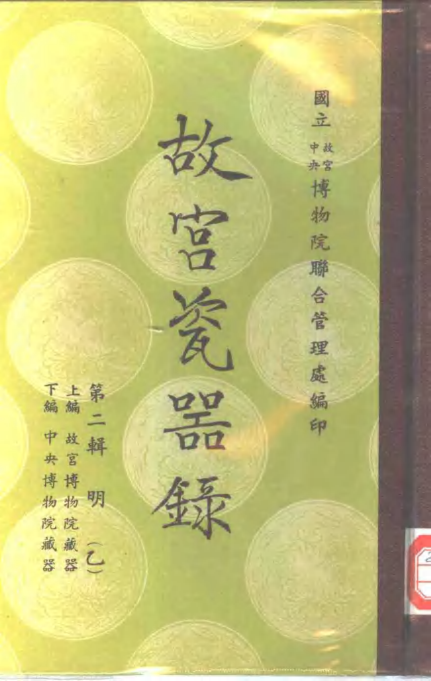 國立故宮中央博物院聯合管理處編印
故宮瓷器錄
第二輯 明（乙）
上編 故宮博物院藏器
下編 中央博物院藏器